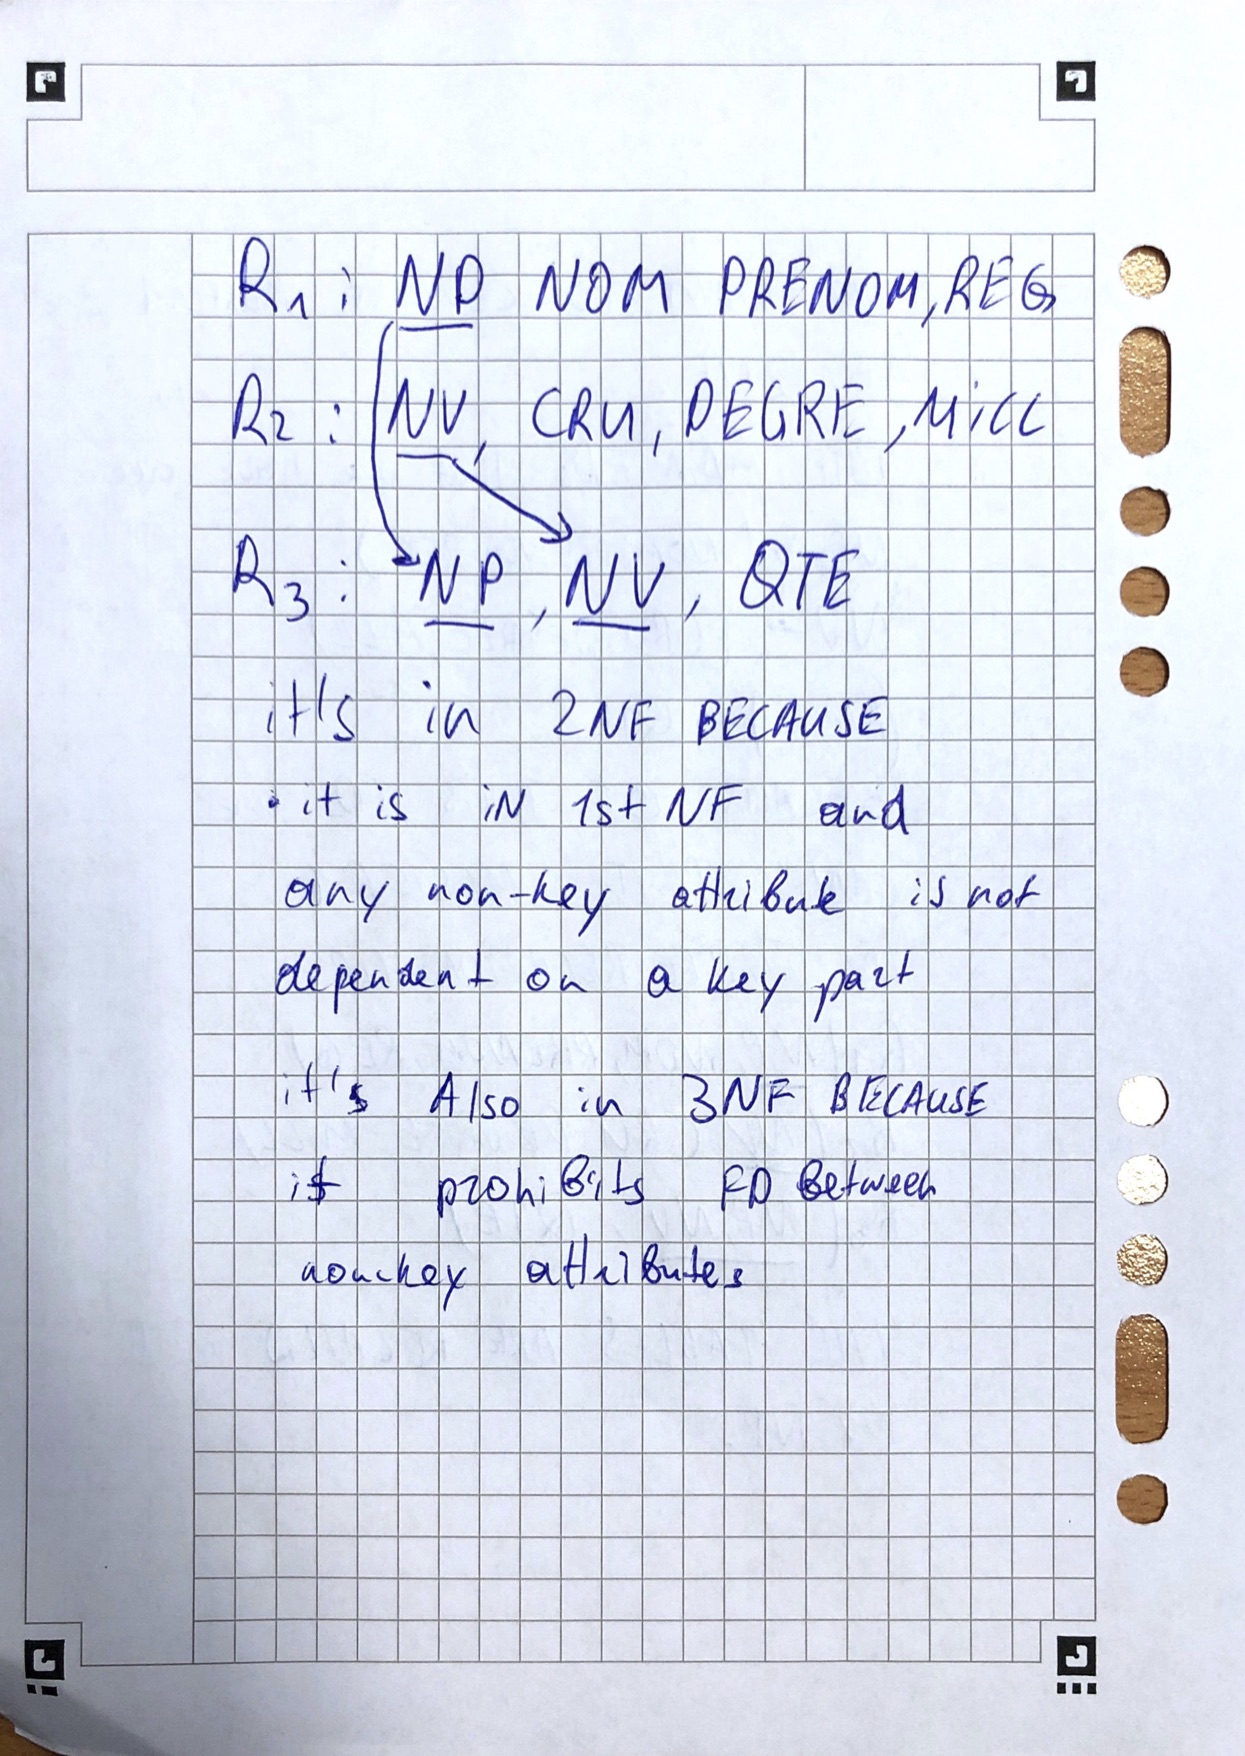 R1: NP NOM PRENOM, REG
R2: NV, CRU, DEGRE, MiLL
R3: NP, NV, QTE
it's in 2NF BECAUSE
· it is iN 1st NF and
any non-key attribute is not
dependent on a key part
it's Also in 3NF BECAUSE
it prohibits FD Between
non-key attributes